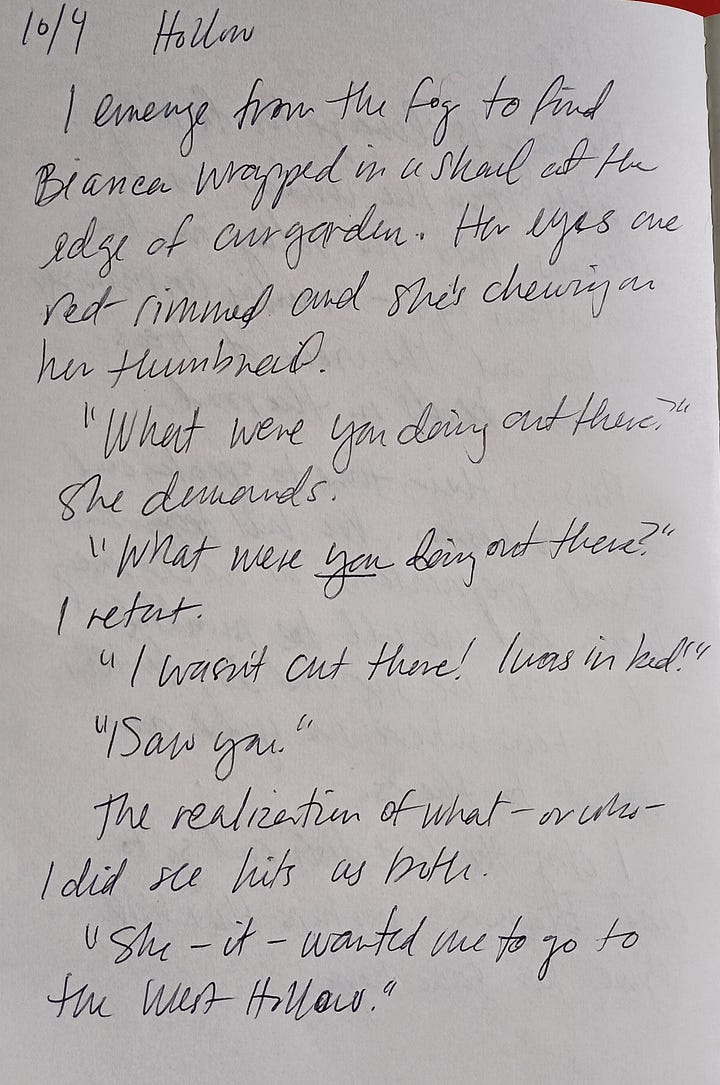 10/4 Hollow
I emerge from the fog to find
Bianca wrapped in a shawl at the
edge of our garden. Her eyes are
red-rimmed and she's chewing on
her thumbnail.
"What were you doing out there?"
she demands.
"What were you doing out there?"
I retort.
"I wasn't out there! I was in bed!"
"I saw you."
The realization of what – or who –
I did see hits us both.
"She – it – wanted me to go to
the West Hollow."